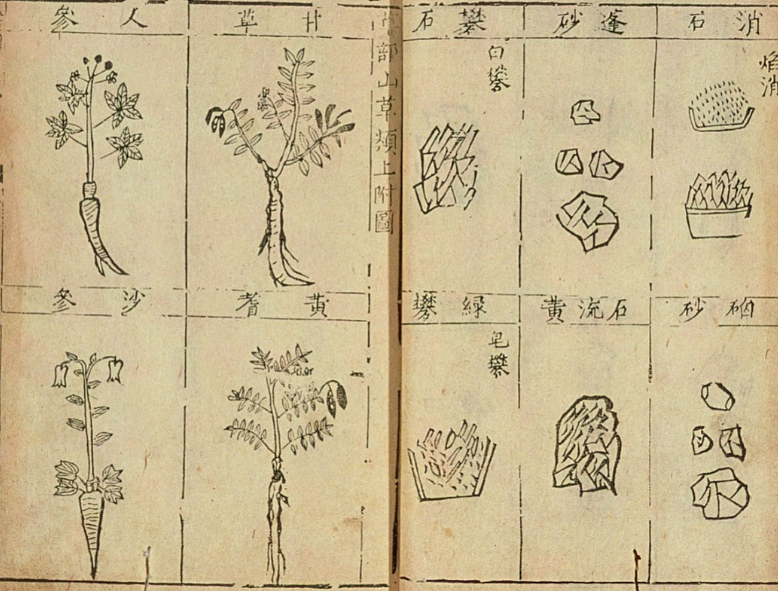 消石
焰消
蓬砂
礬石
白礬
硇砂
石流黄
綠礬
皂礬
草部山草類上附圖
甘草
人參
黄耆
沙參